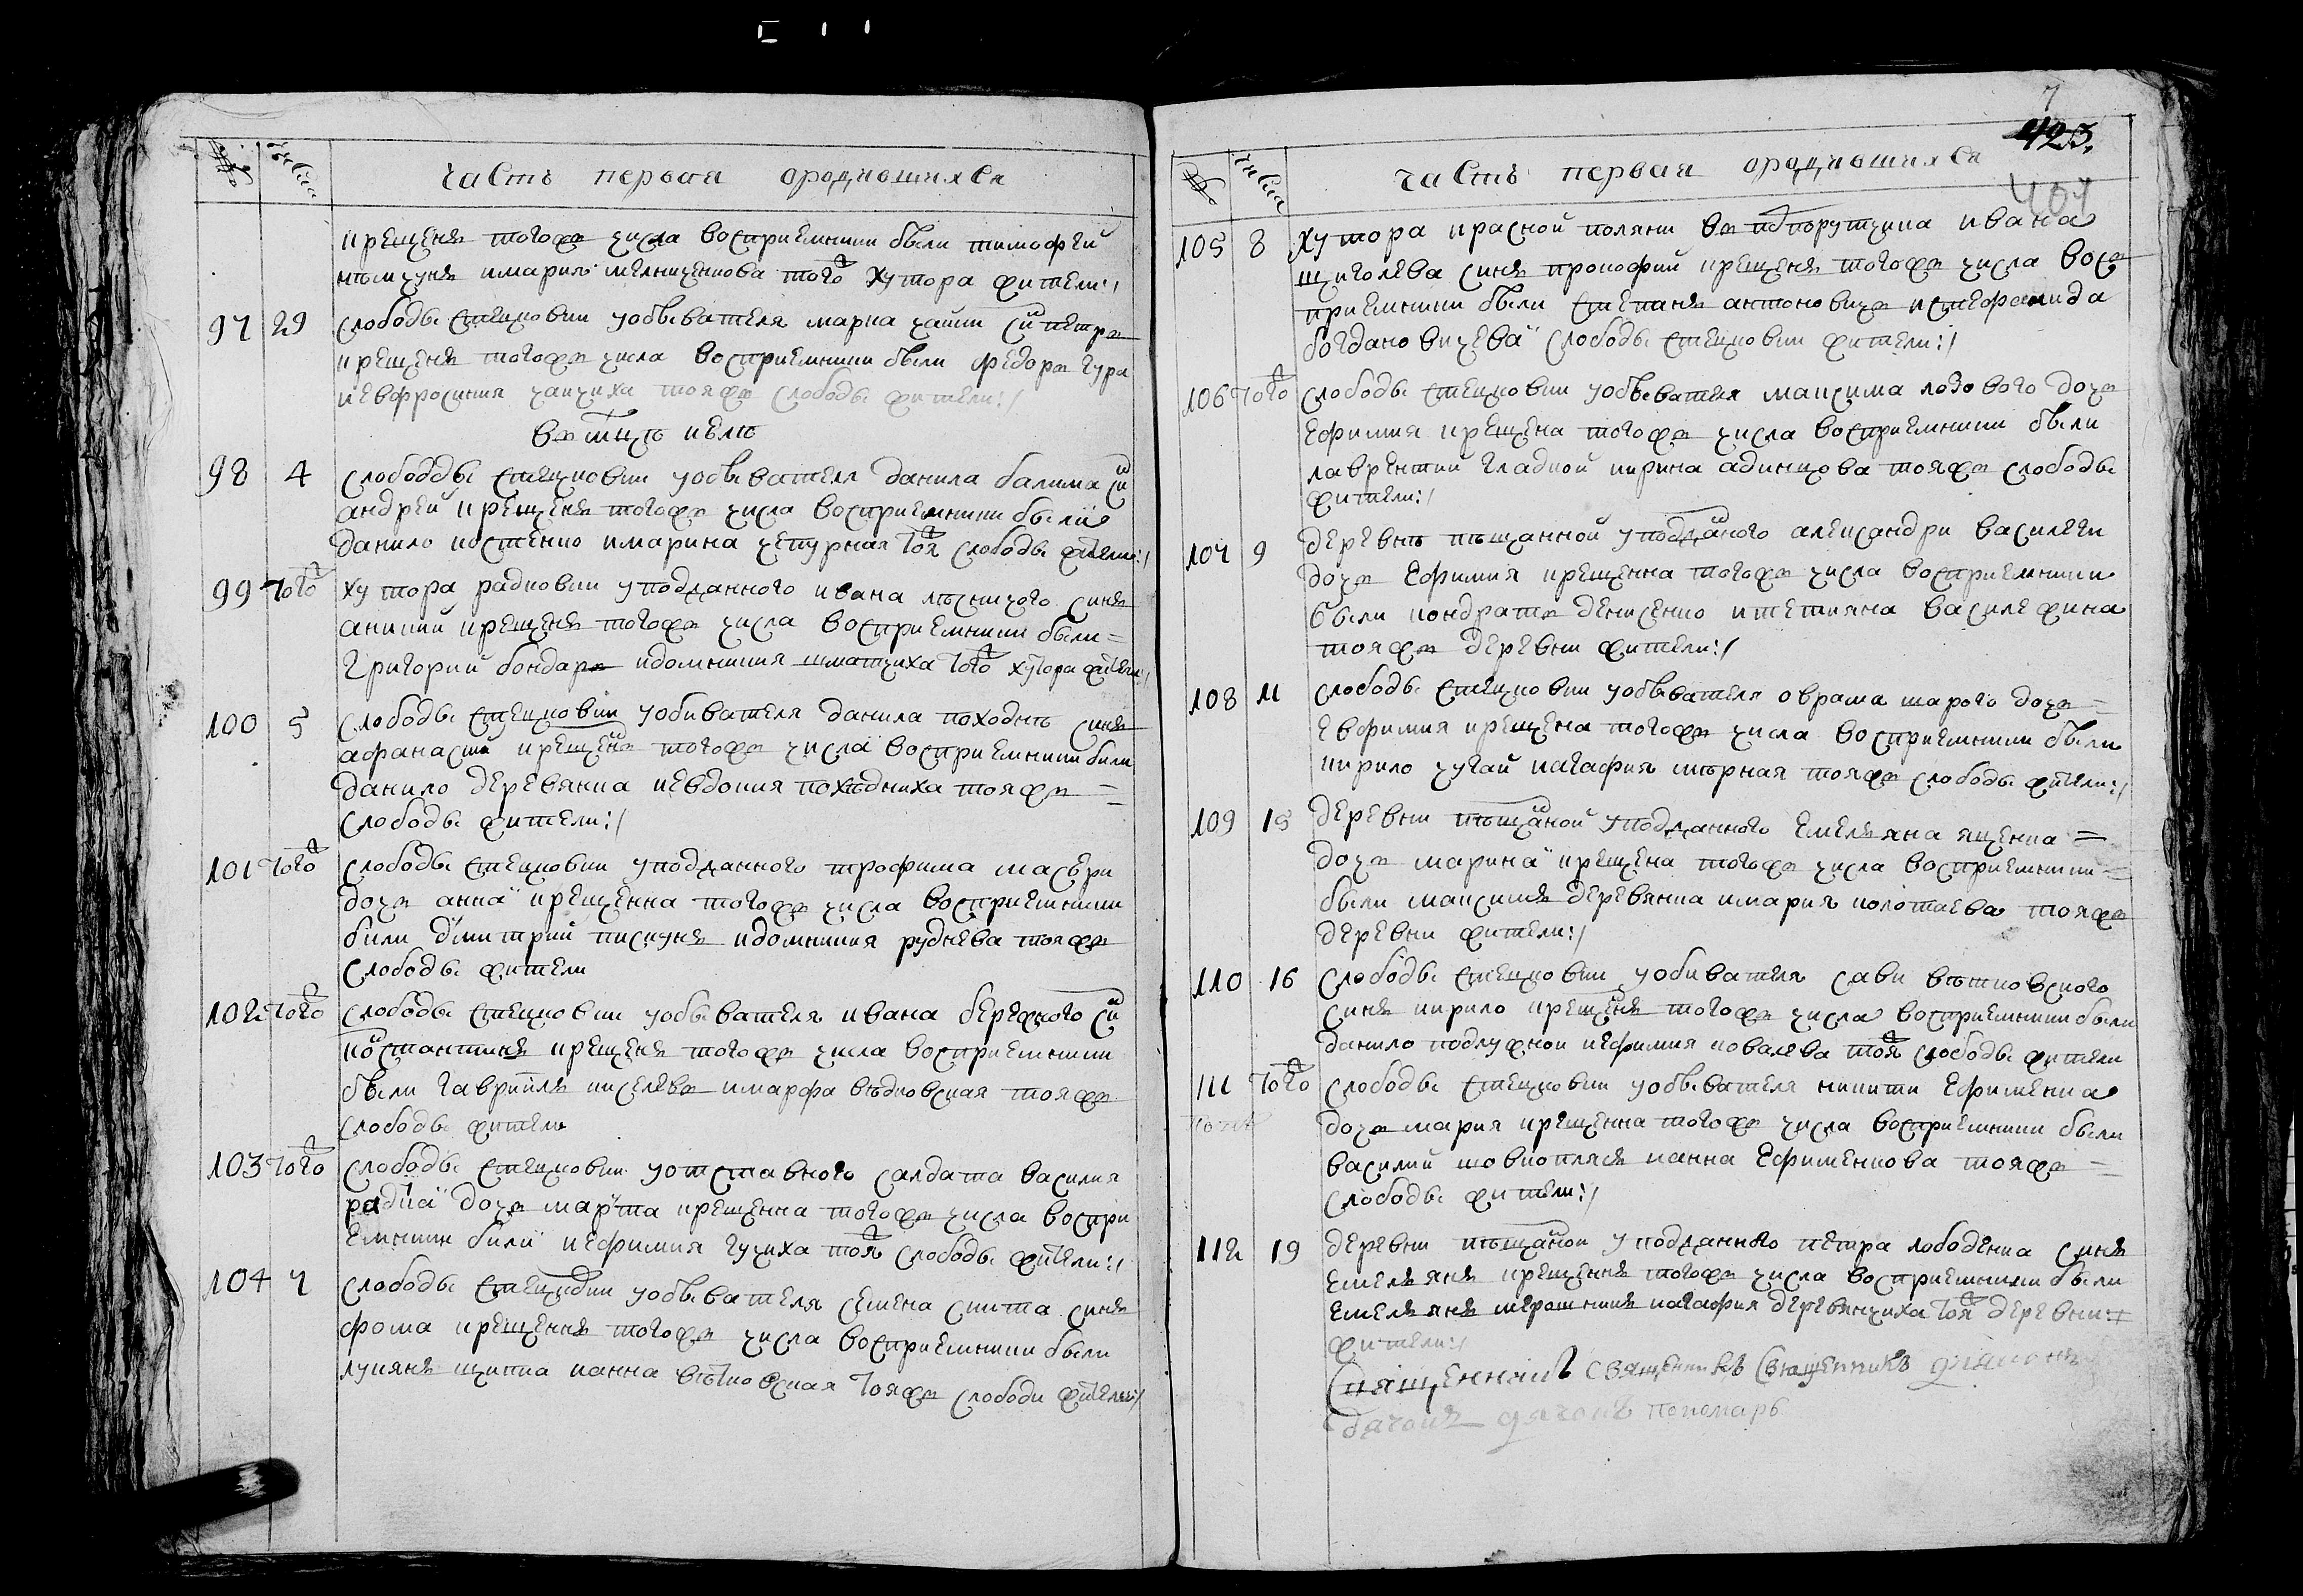 №
числа
часть первая ородившихся
крещенъ тогожъ числа восприемники были тимофей
имария мелниченкова того хутора жители:/
97 29 слободы стецковки уобывателя марка чайки сн петръ
крещенъ тогожъ числа восприемники были федоръ гура
иевфросиния чайчиха тояжъ слободы жители:/
98 4 слободды стецковки уобывателя данила балима сн
андрей крещенъ тогожъ числа восприемники были
данило костенко имарина чепурная тоя слободы жители:/
99 того хутора радковки уподданного ивана лѣсничого синъ
аникий крещенъ тогожъ числа восприемники были=
григорий бондаръ идомникия шматчиха того хутора жители:/
100 5 слободы стецковки уобивателя данила походнѣ синъ
афанасий крещенъ тогожъ числа восприемники били
данило деревянка иевдокия походниха тояжъ=
слободы жители:/
101 того слободы стецковки уподданного трофима масюри
дочъ анна крещенна тогожъ числа восприемники
били дмитрий пискунъ идомникия руднева тояжъ
слободы жители
102 того слободы стецковки уобывателя ивана бережного сн
костантинъ крещенъ тогожъ числа восприемники
были гавриилъ киселевъ имарфа вѣдковская тояжъ
слободы жители
103 того слободы стецковки уотставного салдата василия
радка дочъ марта крещенна тогожъ числа воспри
емники били иефимия гучиха тоя слободы жители:/
104 7 слободы стецковки уобывателя семена скита синъ
фома крещеннъ тогожъ числа восприемники были
лукянъ щипка ианна вѣтковская тояжъ слободи жители:/
7
423.
401
№
числа
часть первая ородившихся
105 8 хутора красной поляни въ подпорутчика ивана
щиголева синъ прокофий крещенъ тогожъ числа восъ
приемники были степанъ антоновичъ истефанида
богдановичева слободы стецковки жители:/
106 того слободы стецковки уобывателя максима лозового дочъ
ефимия крещена тогожъ числа восприемники были
лаврентий гладкой иирина адинцова тояжъ слободы
жители:/
107 9 деревнѣ пѣщанной уподданого александри василеги
дочъ ефимия крещенна тогожъ числа восприемники
были кондратъ денисенко итетияна василежина
тояжъ деревни жители:/
108 11 слободы стецковки уобывателя оврама шарого дочъ=
евфимия крещена тогожъ числа восприемники были
кирило чугай иагафия мѣрная тояжъ слободы жители:/
109 15 деревни пѣщаной уподданного емелъяна ященка=
дочъ марина крещена тогожъ числа восприемники=
были максимъ деревянка имария колотаева тояжъ
деревни жители:/
110 16 слободы стецковки уобивателя сави вѣтковского
синъ кирило крещенъ тогожъ числа восприемники были
данило подлужнои иефимия ковалева тоя слободы жители
111 того слободы стецковки уобывателя никити ефименка
дочъ мария крещенна тогожъ числа восприемники были
василий шовкоплясъ ианна ефименкова тояжъ=
слободы жители:/
112 19 деревни пѣщанои уподданного петра лободенка синъ
емелъянъ крещеннъ тогожъ числа восприемники были
емелъянъ мирошникъ иагафия деревянчиха тоя деревни:
жители:/
священникъ священникъ диаконъ
дячокъ дячокъ пономарь